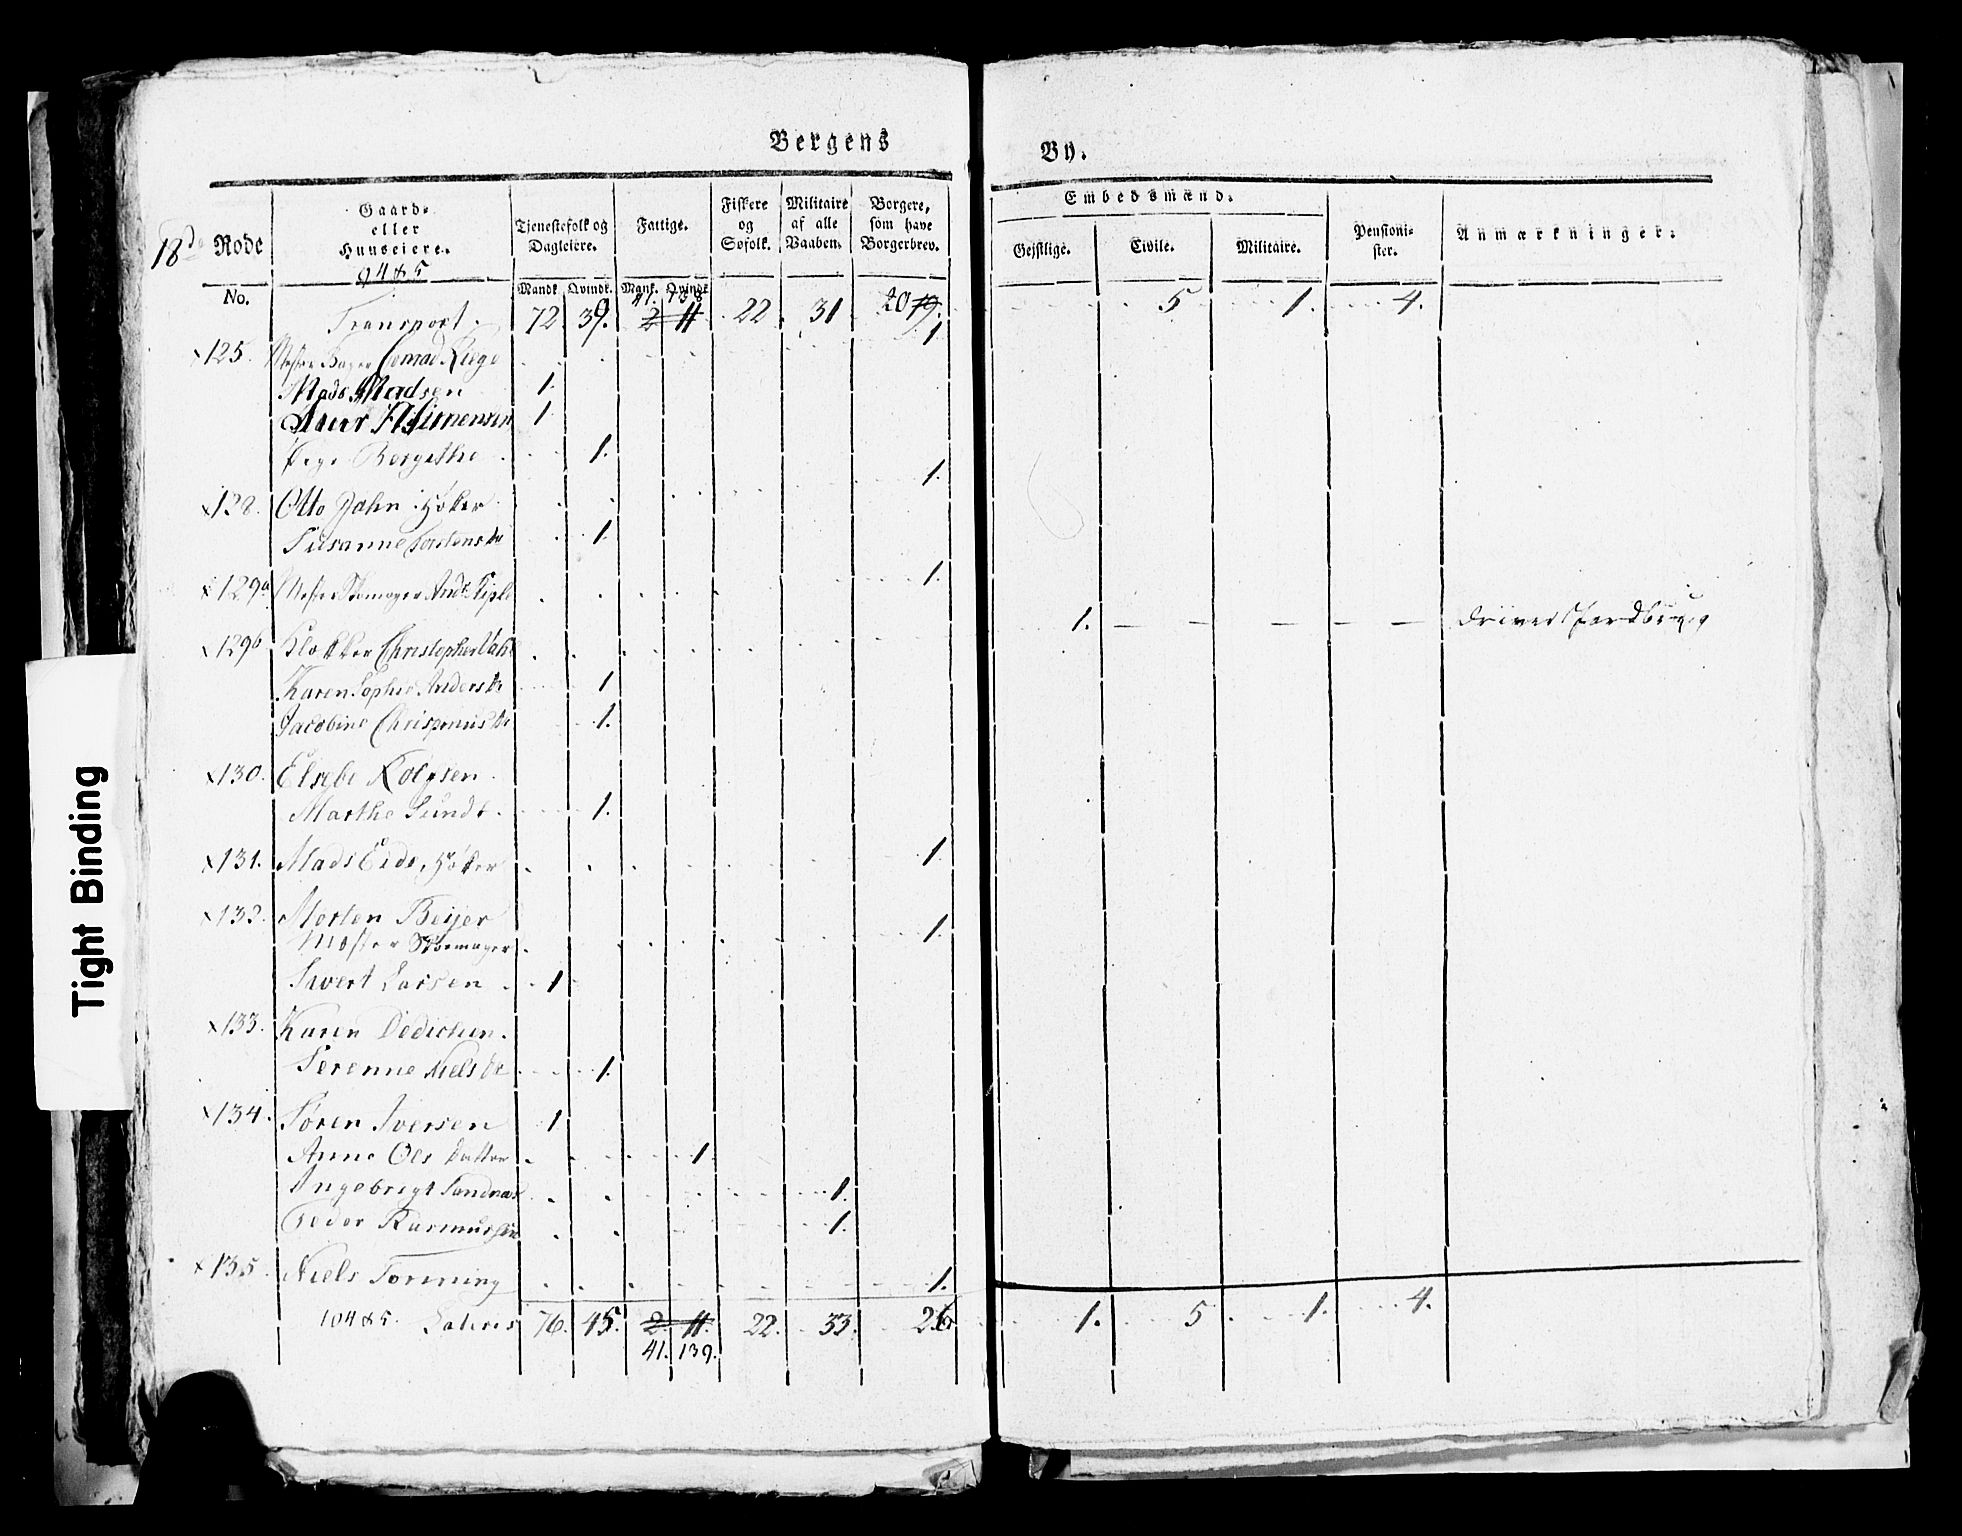 Bergens By.
18de Rode
No.
Gaard-
eller
Huuseiere.
94 & 5
Tjenestefolk og
Dagleiere.
Mandk. Qvindk.
Fattige.
Mank. Qvindk.
Fiskere
og
Søfolk.
Militaire
af alle
Vaaben.
Borgere,
som have
Borgerbrev.
Embedsmænd.
Gejstlige. Civile. Militaire.
Pensioni-
ster.
Anmærkninger.
41. 138
Transport. 72. 39. 2 11 22. 31 20 19. 5 1. 4.
x125. Mester Bager Conrad 1
Mads Madsen 1.
1.
Pige Bergethe 1.
x128. Otto Jahn Høker 1.
Susanne 1.
x129a Mester Skomager And: 1.
x129b Klokker Christopher Dahl 1. — — — — driver
Karen Sophie Andersdr 1
Jacobine 1.
x130. Elsebe
Marthe Sundt. 1.
x131. Mads Eide, Høker 1
x132. Morten Beijer
Mester Skomager 1.
Sivert Larsen 1
x133. Karen Dedichen.
Serenne Nielsdr 1.
x134. Søren Iversen 1
Anne Ols datter 1
Ingebrigt Sandnes 1.
Peder Rasmussen 1.
x135 Niels Forming 1.
104 & 5. Lateris 76. 45. 2. 11. 22. 33. 26 1. 5. 1. 4.
41. 139.
Tight Binding